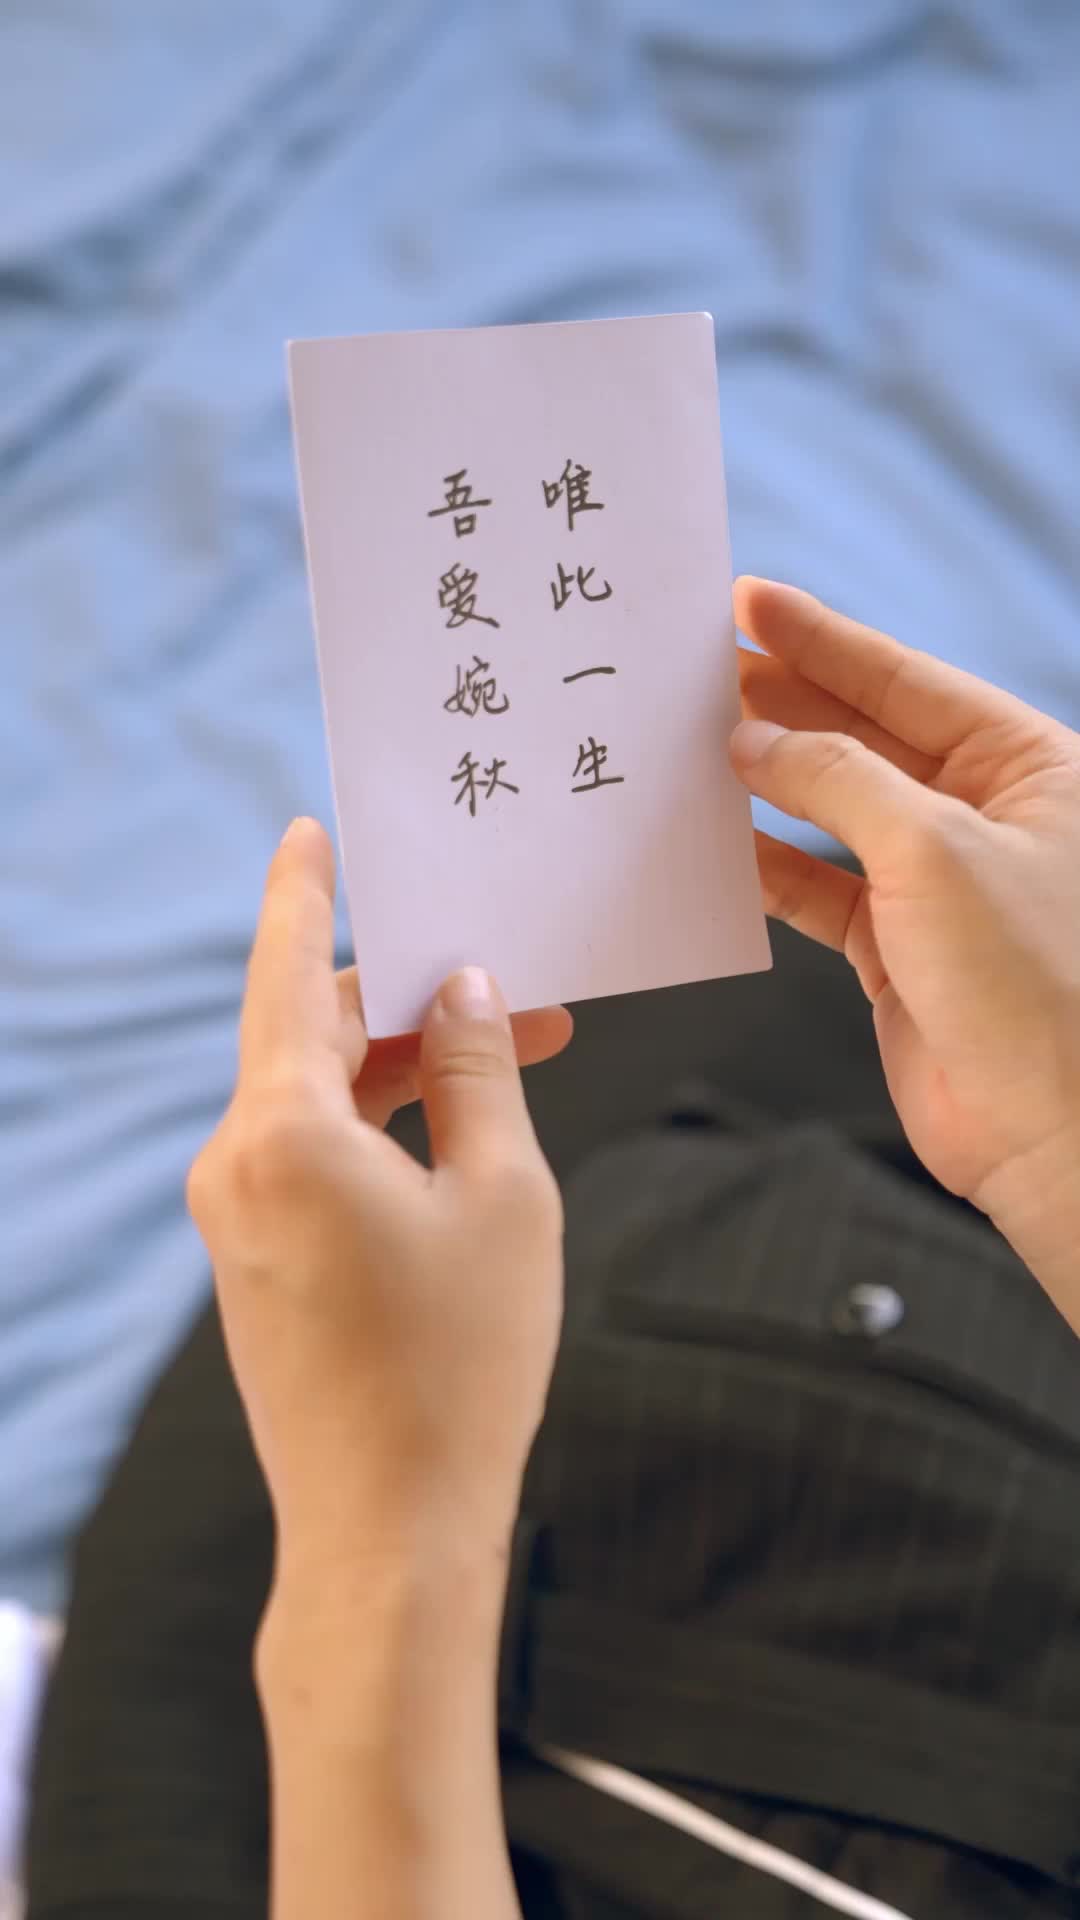 唯此一生
吾爱婉秋